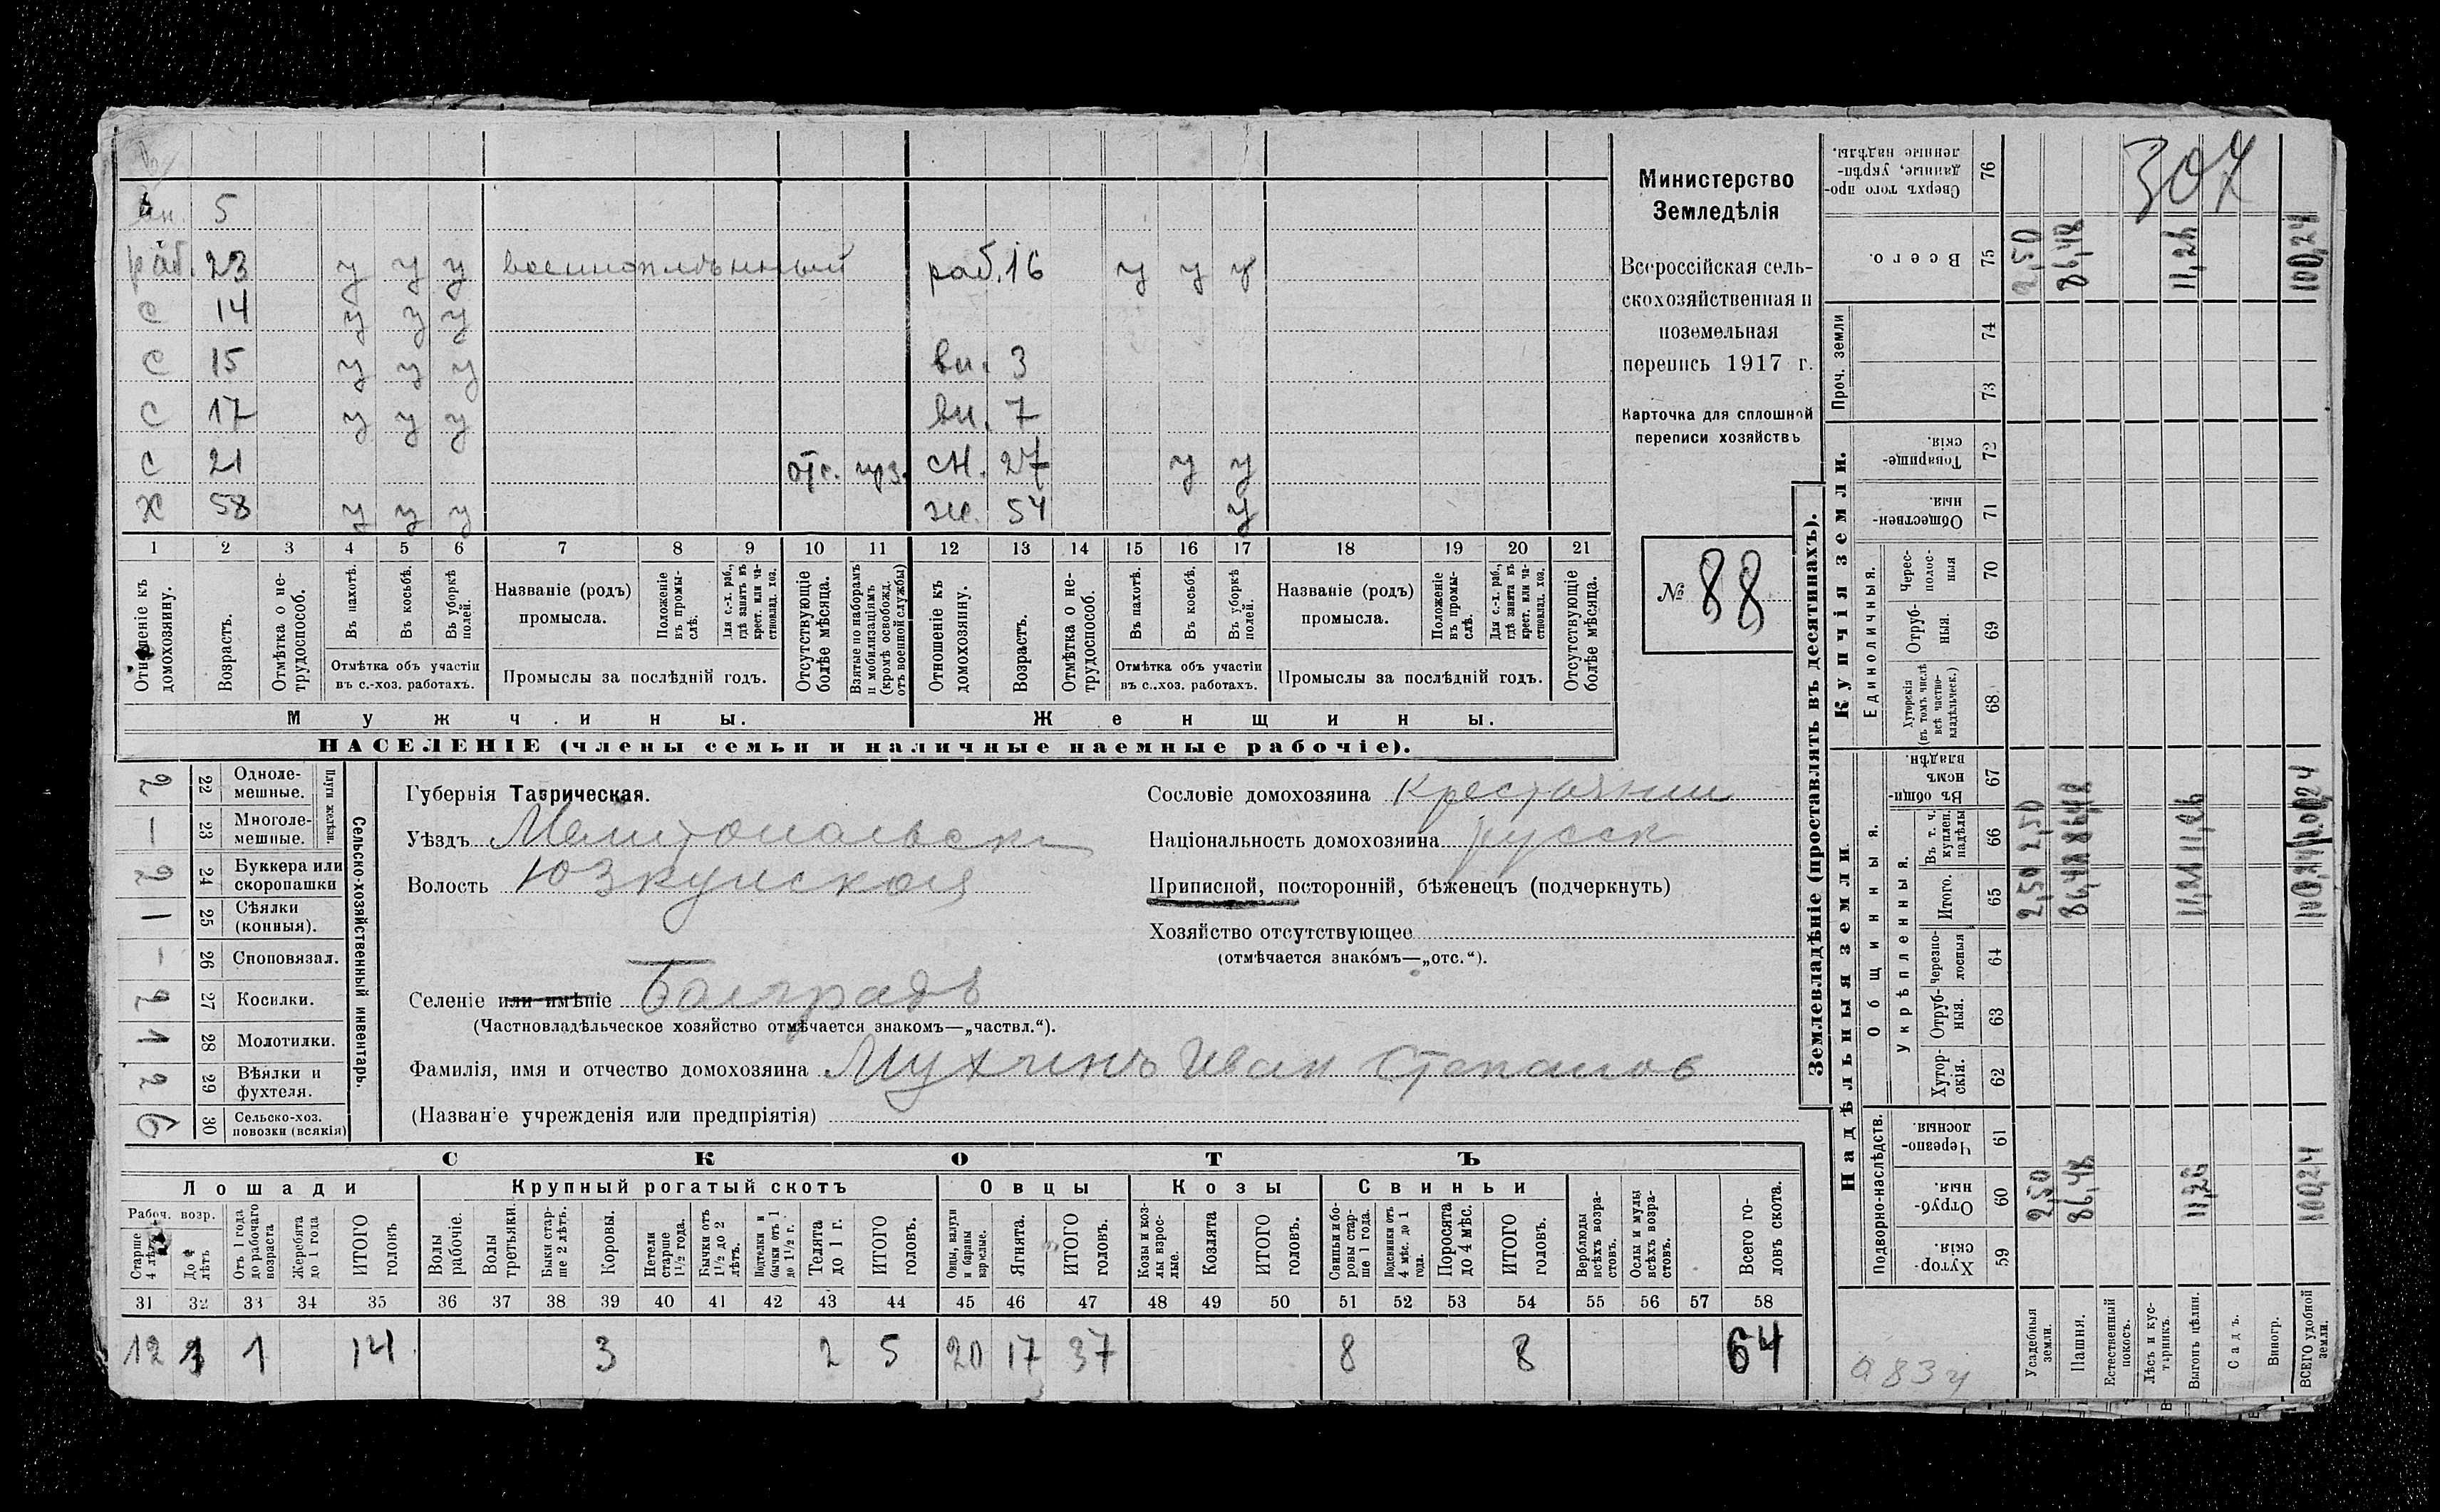 вн. 5
раб. 23 у у у военнопленный раб. 16 у у у
с 14 у у у
с 15 у у у вн. 3
с 17 у у у вн. 7
с 21 отс. сн. 27 у у
х 58 у у у ж. 54 у
1 2 3 4 5 6 7 8 9 10 11 12 13 14 15 16 17 18 19 20 21
Отношеніе къ домохозяину.
Возрастъ.
Отмѣтка о нетрудоспособ.
Въ пахотѣ.
Въ косьбѣ.
Въ уборкѣ полей.
Отмѣтка объ участіи въ с.-хоз. работахъ.
Названіе (родъ) промысла.
Положеніе въ промыслѣ.
Для с.-х. раб., гдѣ занятъ въ крест. или частновлад. хоз.
Промыслы за послѣдній годъ.
Отсутствующіе болѣе мѣсяца.
Взятые по наборамъ и мобилизаціямъ (кромѣ освобожд. отъ военной службы)
Отношеніе къ домохозяину.
Возрастъ.
Отмѣтка о нетрудоспособ.
Въ пахотѣ.
Въ косьбѣ.
Въ уборкѣ полей.
Отмѣтка объ участіи въ с..хоз. работахъ.
Названіе (родъ) промысла.
Положеніе въ промыслѣ.
Для с.-х. раб., гдѣ занята въ крест. или частновлад. хоз.
Промыслы за послѣдній годъ.
Отсутствующіе болѣе мѣсяца.
Мужчины.
Женщины.
НАСЕЛЕНІЕ (члены семьи и наличные наемные рабочіе).
Министерство
Земледѣлія
Всероссійская сель-
скохозяйственная и
поземельная
перепись 1917 г.
Карточка для сплошной
переписи хозяйствъ
№ 88
Сельско-хозяйственный инвентарь.
Плуги желѣзн.
2 22 Однолемешные.
— 23 Многолемешные.
2 24 Буккера или скоропашки
1 25 Сѣялки (конныя).
- 26 Сноповязал.
2 27 Косилки.
1 28 Молотилки.
2 29 Вѣялки и фухтеля.
6 30 Сельско-хоз. повозки (всякія)
Губернія Таврическая.
Уѣздъ Мелитопольск
Волость Юзкуйская
Селеніе или имѣніе Балградъ
(Частновладѣльческое хозяйство отмѣчается знакомъ—„частвл.“).
Фамилія, имя и отчество домохозяина Мухинъ Иван Степанов
(Названіе учрежденія или предпріятія)
Сословіе домохозяина Крестьянин
Національность домохозяина русск
Приписной, посторонній, бѣженецъ (подчеркнуть)
Хозяйство отсутствующее
(отмѣчается знакомъ—„отс.“).
СКОТЪ
Лошади Крупный рогатый скотъ Овцы Козы Свиньи
Рабоч. возр.
Старше 4 лѣтъ
До 4 лѣтъ
Отъ 1 года до рабочаго возраста
Жеребята до 1 года
ИТОГО головъ
Волы рабочіе.
Волы третьяки.
Быки старше 2 лѣтъ.
Коровы.
Нетели старше 1½ года.
Бычки отъ 1½ до 2 лѣтъ.
Подтелки и бычки отъ 1 до 1½ г.
Телята до 1 г.
ИТОГО головъ.
Овцы, валухи и бараны взрослые.
Ягнята.
ИТОГО головъ.
Козы и козлы взрослые.
Козлята
ИТОГО головъ.
Свиньи и боровы старше 1 года.
Подсвинки отъ 4 мѣс. до 1 года.
Поросята до 4 мѣс.
ИТОГО головъ.
Верблюды всѣхъ возрастовъ.
Ослы и мулы всѣхъ возрастовъ.
Всего головъ скота.
31 32 33 34 35 36 37 38 39 40 41 42 43 44 45 46 47 48 49 50 51 52 53 54 55 56 57 58
12 1 1 14 3 2 5 20 17 37 8 8 64
Землевладѣніе (проставлять въ десятинахъ).
Купчія земли.
Надѣльныя земли.
307
Сверхъ того проданные, укрѣпленные надѣлы. 76
Всего. 75 2,50 86,48 11,26 100,24
Проч. земли 74 73
Товарищескія. 72
Общественныя. 71
Единоличныя.
Чересполосныя 70
Отрубныя. 69
Хуторскія (въ томъ числѣ всѣ частновладѣльческ.) 68
Общинныя.
Въ общинномъ владѣн. 67
Укрѣпленныя.
Въ т. ч. куплен. надѣлы 66 2,50 86,48 11,26 100,24
Итого. 65 2,50 86,48 11,26 100,24
Черезполосныя 64
Отрубныя. 63
Хуторскія. 62
Подворно-наслѣдств.
Черезполосныя. 61
Отрубныя. 60 2,50 86,48 11,26 100,24
Хуторскія. 59
Усадебныя земли.
Пашня.
Естественный покосъ.
Лѣсъ и кустарникъ.
Выгонъ цѣлин.
Садъ.
Виногр.
ВСЕГО удобной земли.